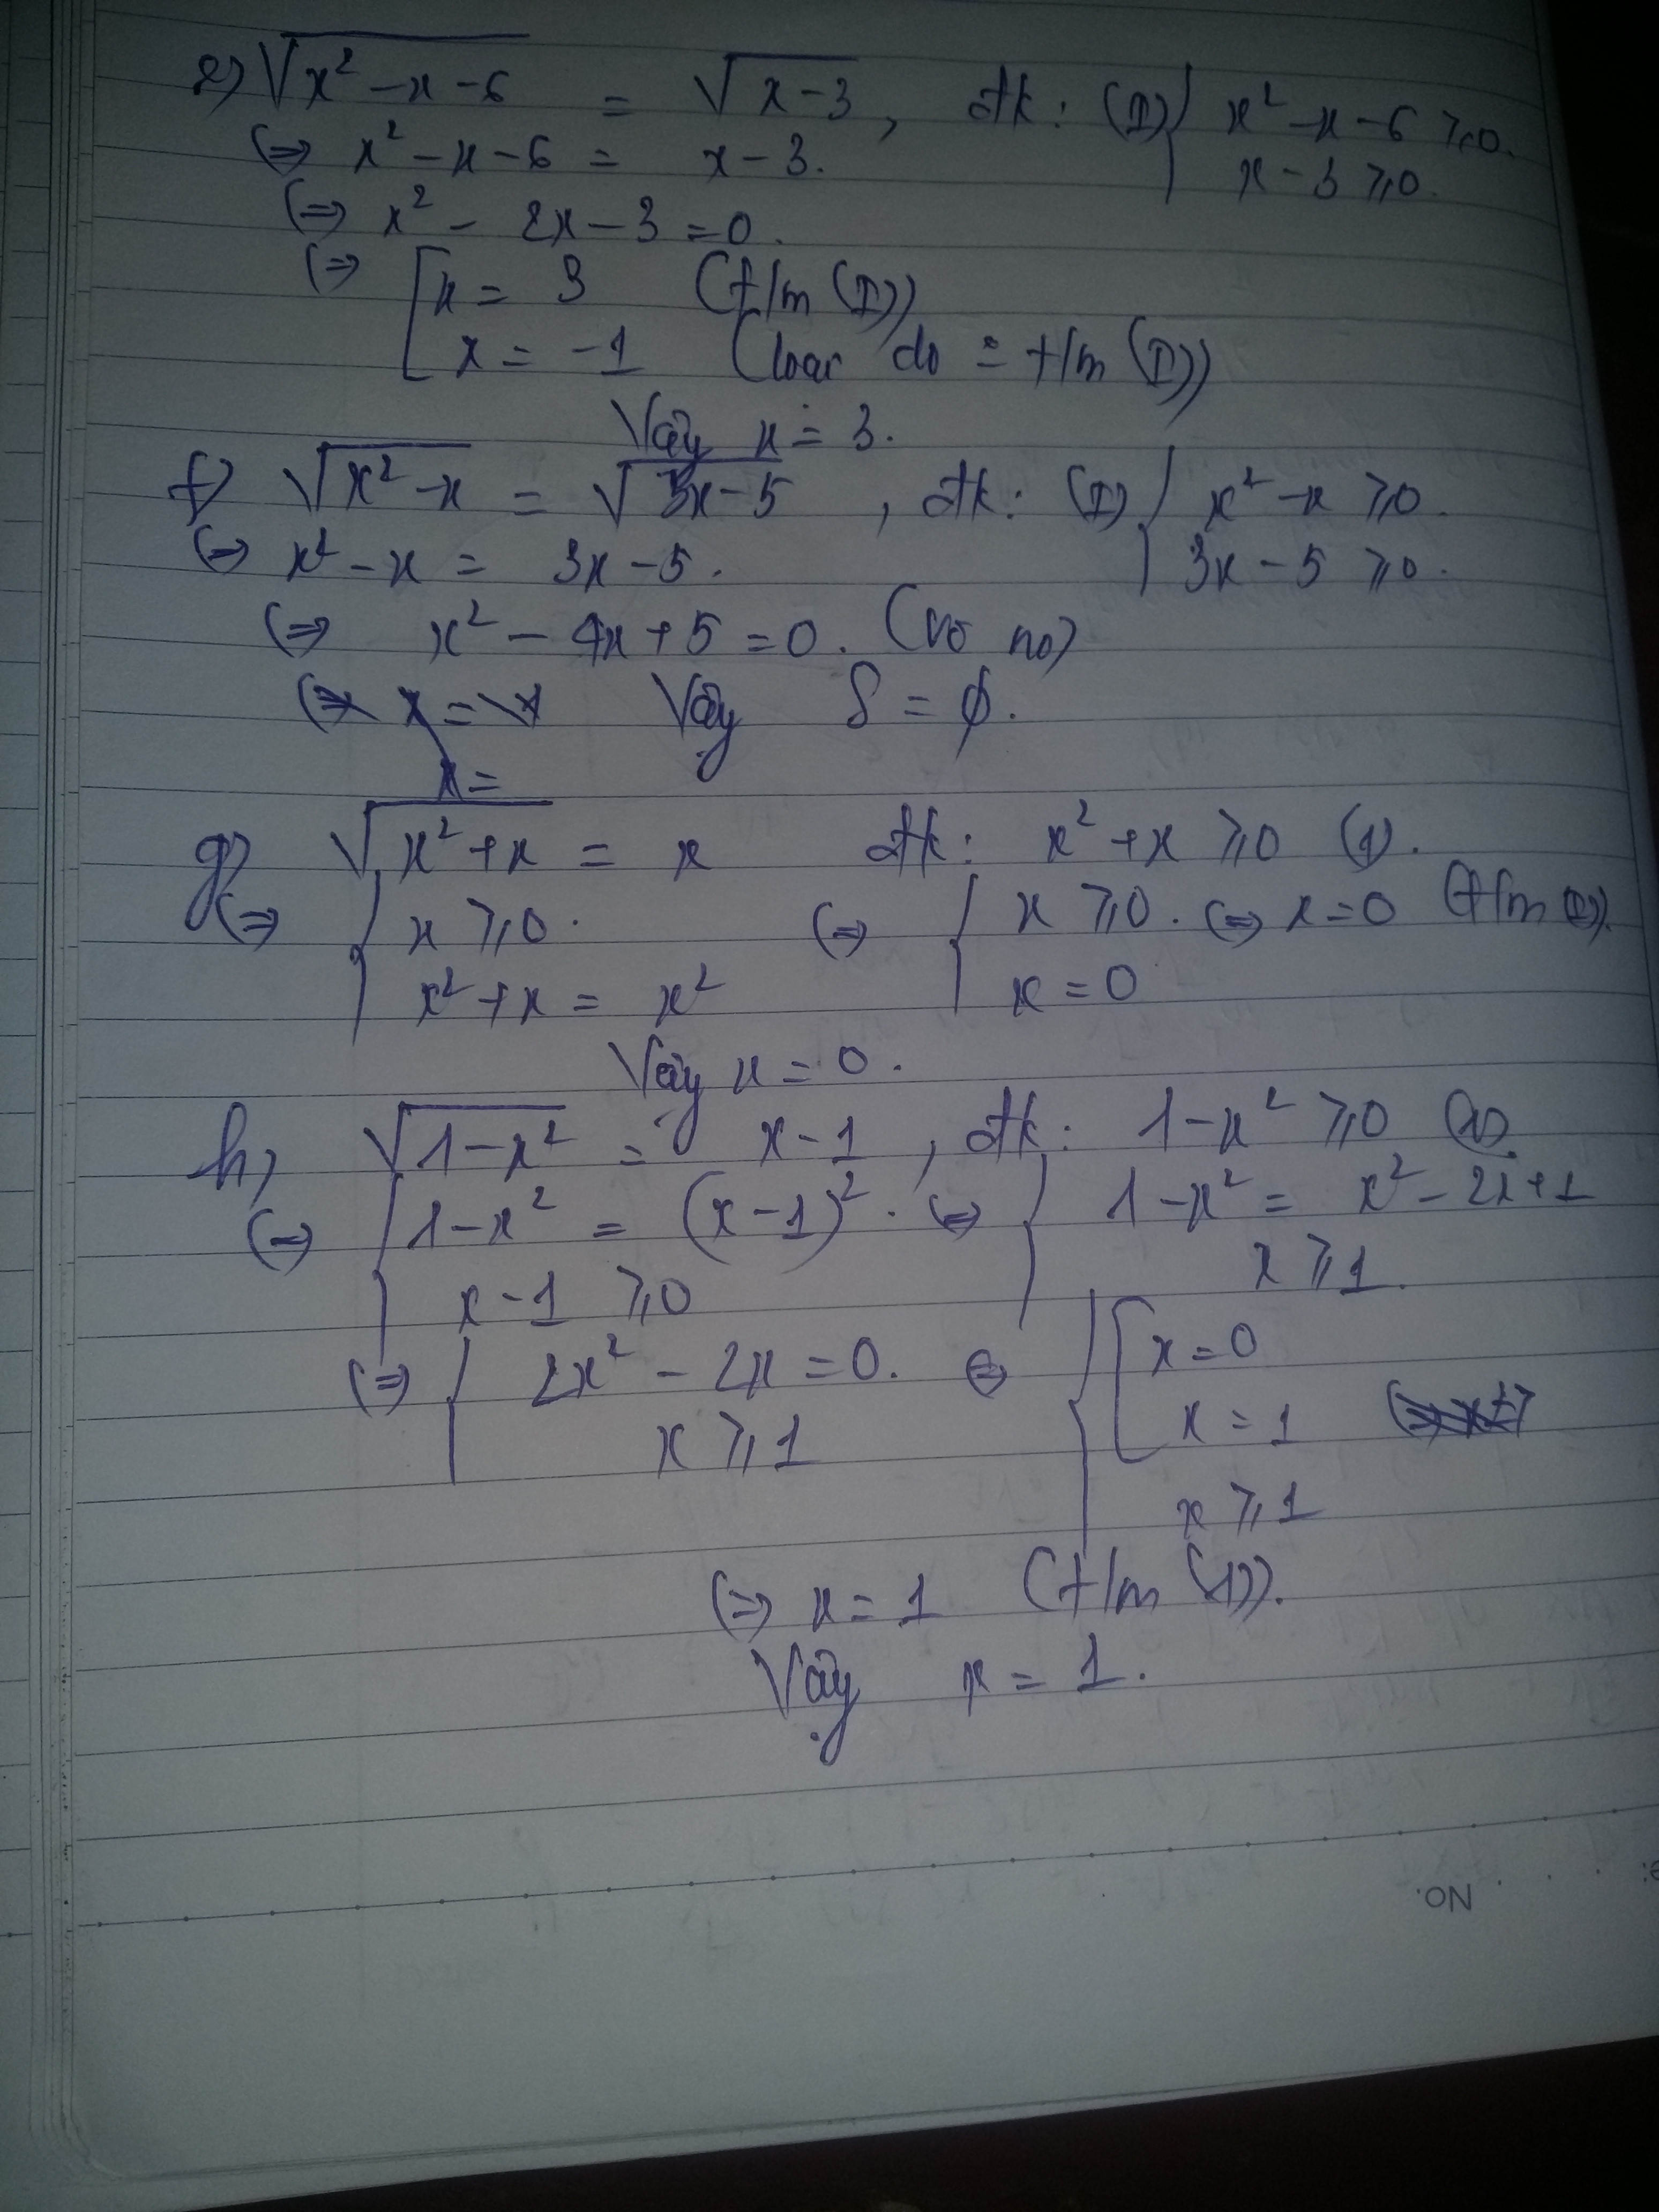 e) √(x² - x - 6) = √(x - 3), đk: (I) { x² - x - 6 ⩾ 0.
(=) x² - x - 6 = x - 3. x - 3 ⩾ 0.
(=) x² - 2x - 3 = 0.
(=) [ x = 3 (t/m (I))
x = -1 (loại do t/m (I))
Vậy x = 3.
f) √(x² - x) = √(3x - 5), đk: (I) { x² - x ⩾ 0.
(=) x² - x = 3x - 5. 3x - 5 ⩾ 0.
(=) x² - 4x + 5 = 0. (vô no)
Vậy S = ∅.
x =
g) √(x² + x) = x đk: x² + x ⩾ 0 (1).
(=) { x ⩾ 0. (=) { x ⩾ 0. (=) x = 0 (t/m (1)).
x² + x = x² x = 0
Vậy x = 0.
h, √(1 - x²) = x - 1, đk: 1 - x² ⩾ 0 (1)
(=) { 1 - x² = (x - 1)². (=) { 1 - x² = x² - 2x + 1
x - 1 ⩾ 0 x ⩾ 1.
(=) { 2x² - 2x = 0. (=) { [ x = 0
x ⩾ 1 x = 1
x ⩾ 1
(=) x = 1 (t/m (1)).
Vậy x = 1.
NO.